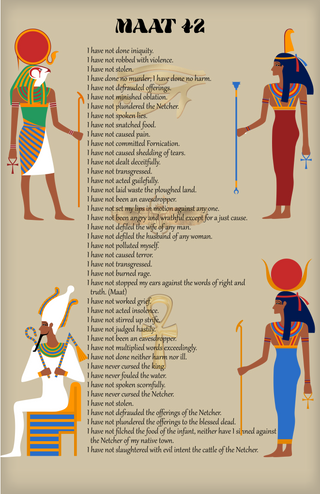 MAAT 42
I have not done iniquity.
I have not robbed with violence.
I have not stolen.
I have done no murder; I have done no harm.
I have not defrauded offerings.
I have not minished oblation.
I have not plundered the Netcher.
I have not spoken lies.
I have not snatched food.
I have not caused pain.
I have not committed Fornication.
I have not caused shedding of tears.
I have not dealt deceitfully.
I have not transgressed.
I have not acted guilefully.
I have not laid waste the ploughed land.
I have not been an eavesdropper.
I have not set my lips in motion against any one.
I have not been angry and wrathful except for a just cause.
I have not defiled the wife of any man.
I have not defiled the husband of any woman.
I have not polluted myself.
I have not caused terror.
I have not transgressed.
I have not burned rage.
I have not stopped my ears against the words of right and
truth. (Maat)
I have not worked grief.
I have not acted insolence.
I have not stirred up strife.
I have not judged hastily.
I have not been an eavesdropper.
I have not multiplied words exceedingly.
I have not done neither harm nor ill.
I have never cursed the king.
I have never fouled the water.
I have not spoken scornfully.
I have never cursed the Netcher.
I have not stolen.
I have not defrauded the offerings of the Netcher.
I have not plundered the offerings to the blessed dead.
I have not filched the food of the infant, neither have I sinned against
the Netcher of my native town.
I have not slaughtered with evil intent the cattle of the Netcher.